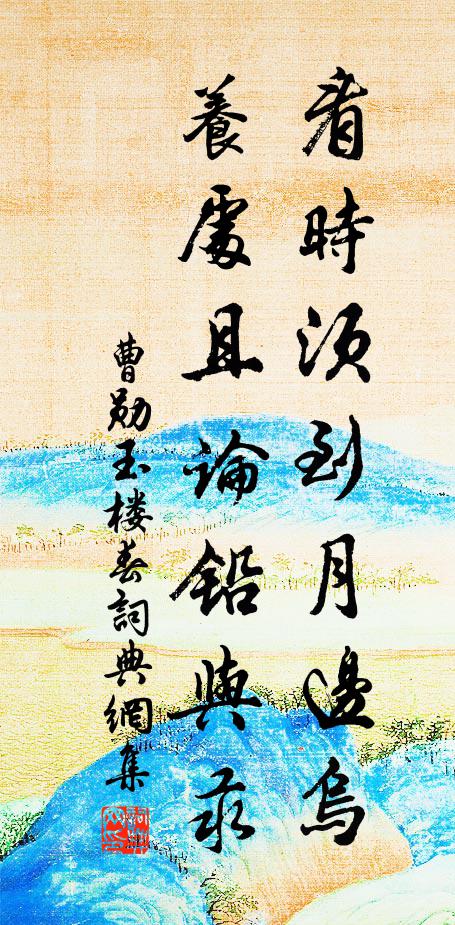 看時須到月邊烏
養處且論鉛與汞
曹勋玉楼春詞典網集